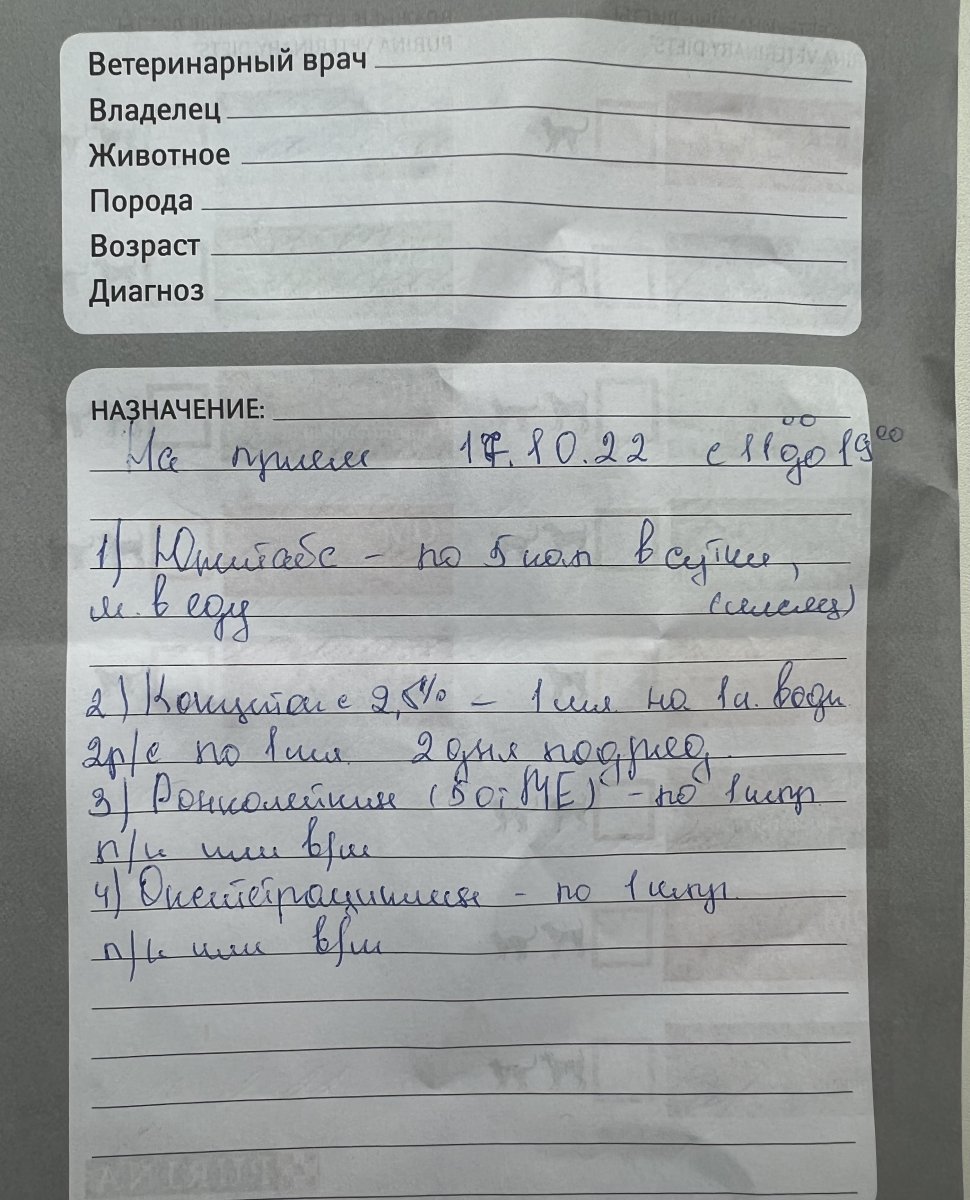 Ветеринарный врач
Владелец
Животное
Порода
Возраст
Диагноз
НАЗНАЧЕНИЕ:
На прием 17.10.22 с 11⁰⁰ до 19⁰⁰
1) Юнитабс - по 5 кап в сутки,
м. в еду
2) 2,5% - 1 мл на 1 л. воды
2р/с по 1 мл 2 дня подряд
3) Ронколейкин (50т МЕ) - по 1
п/к или в/м
4) Окситетрациклин - по 1
п/к или в/м